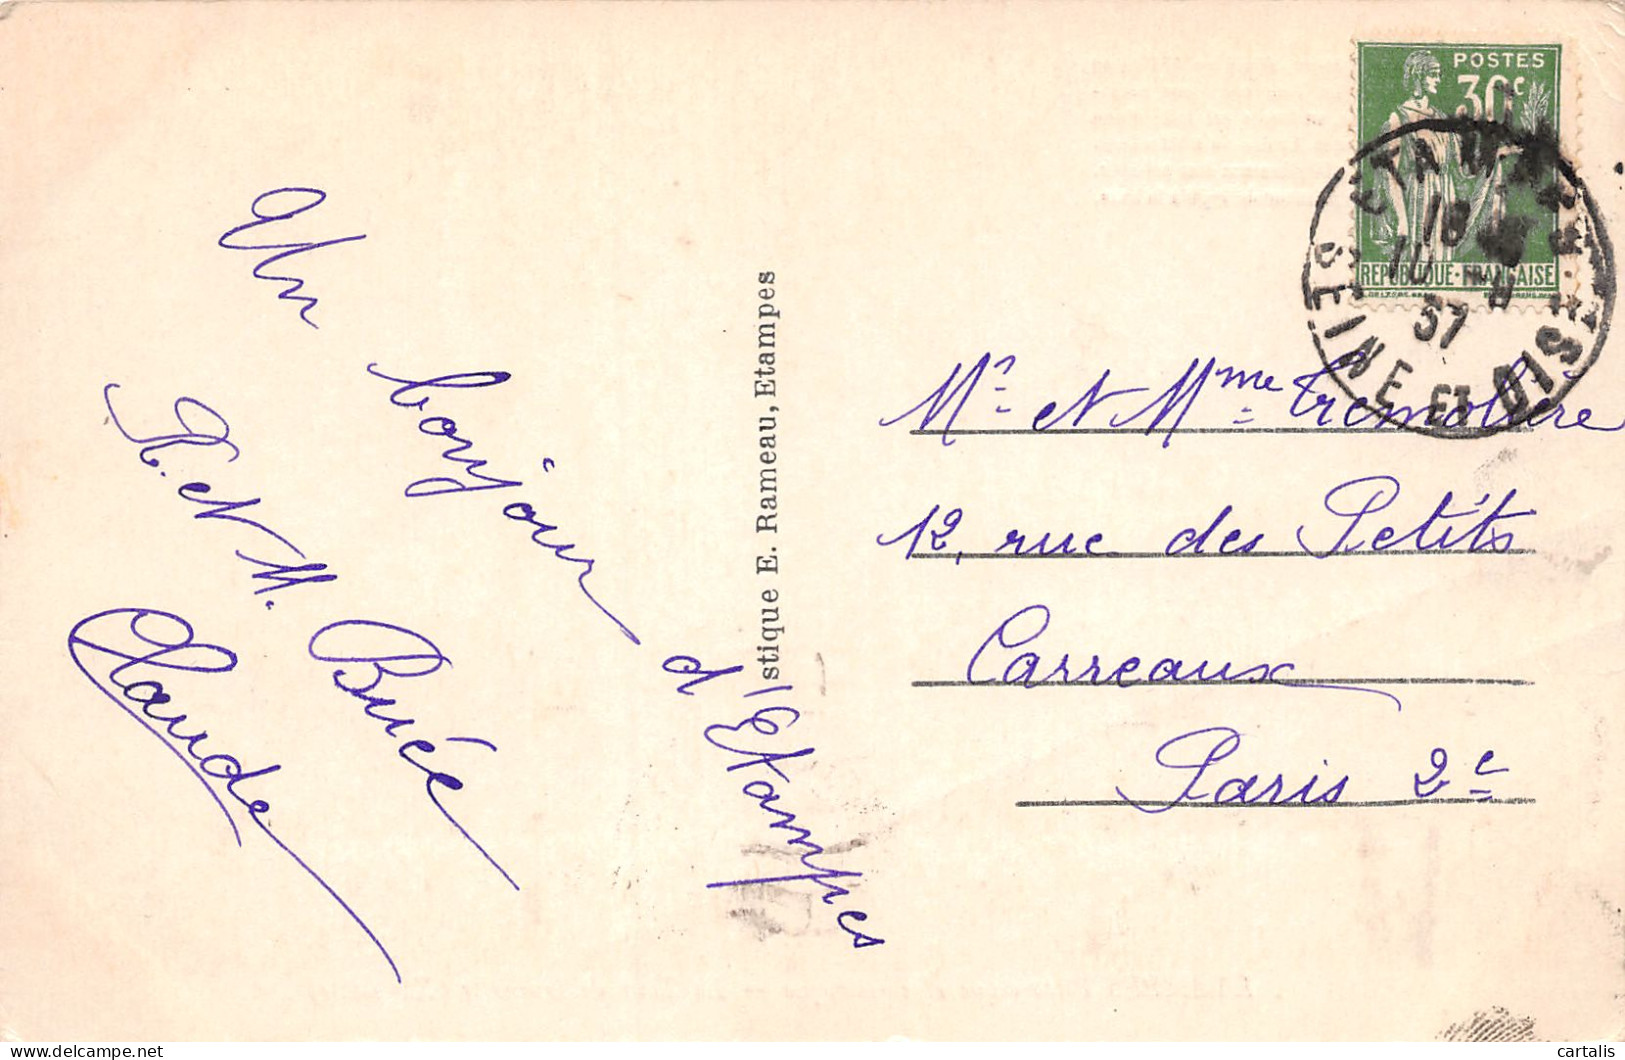 Un
bonjour
d'Etampes
R. et M. Bué
Claude
stique E. Rameau, Etampes
POSTES
30c
REPUBLIQUE·FRANÇAISE
ETAMPES
18
10
37
SEINE ET OISE
Mr et Mme Tremolière
12, rue des Petits
Carreaux
Paris 2e
delcampe.net
cartalis